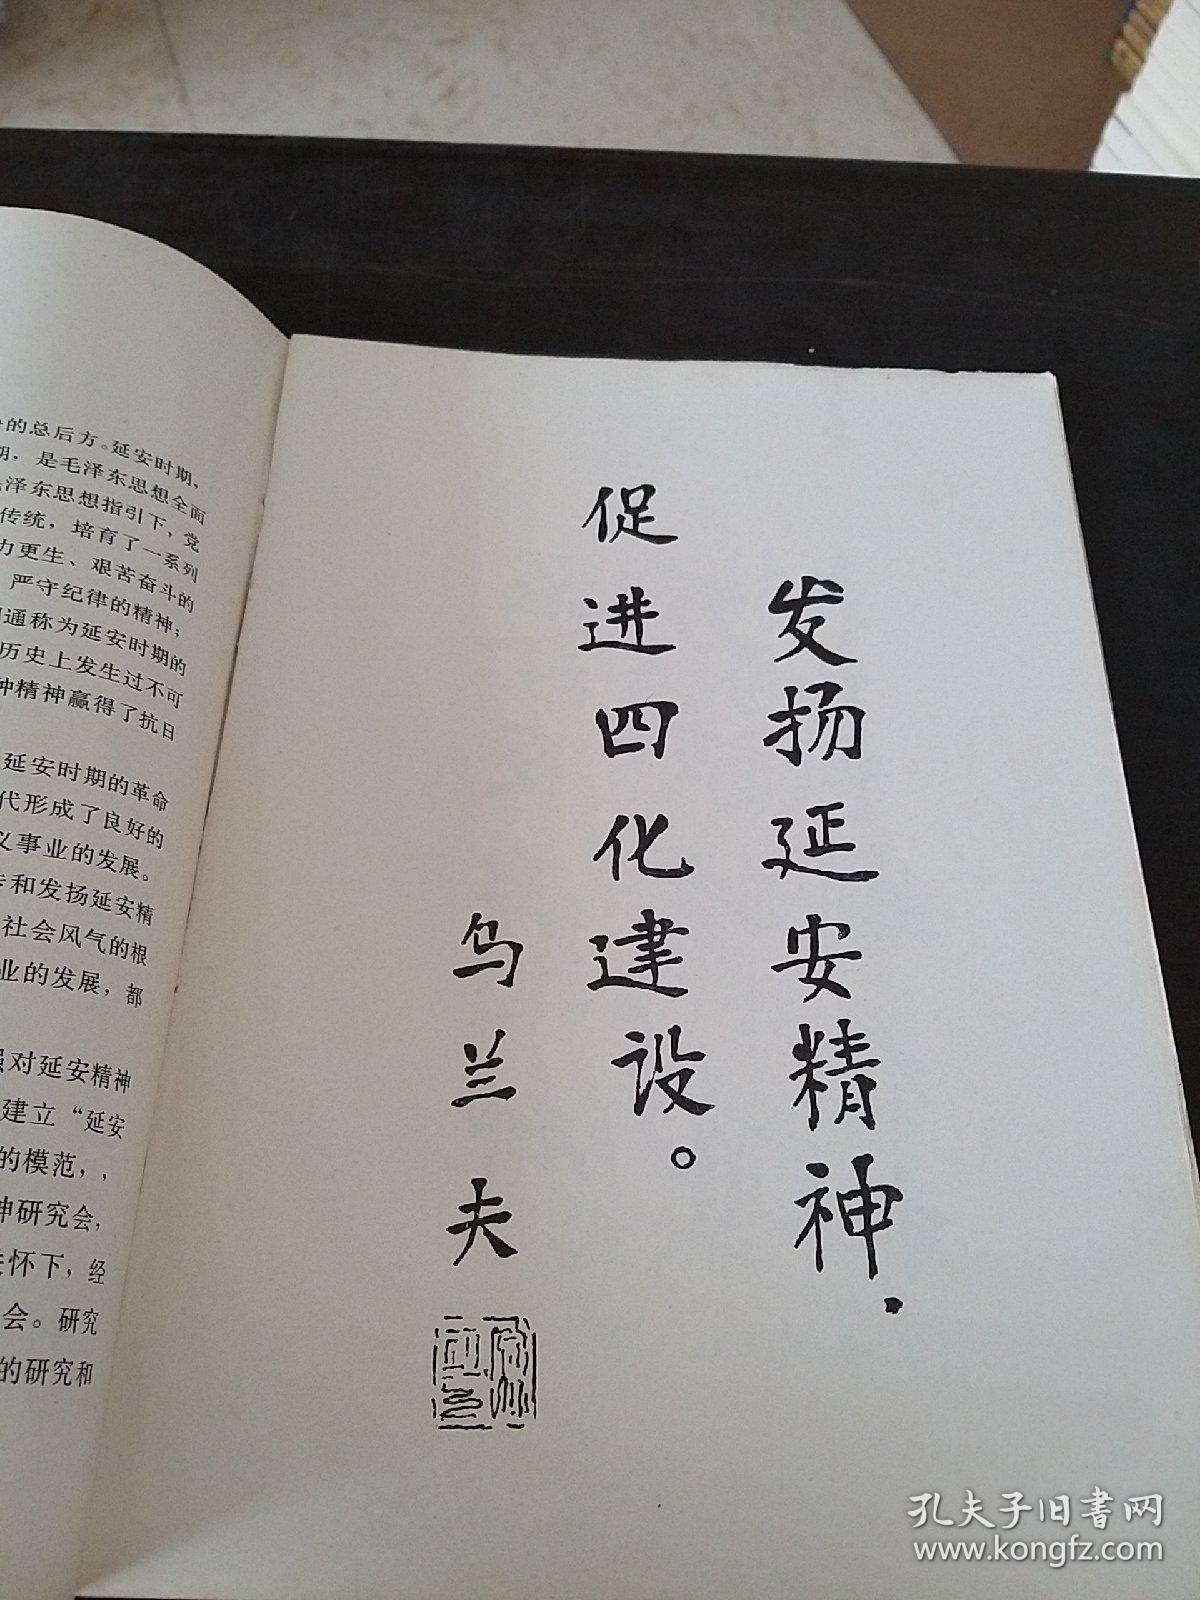 的总后方。延安时期、
期，是毛泽东思想全面
泽东思想指引下，党
传统，培育了一系列
力更生、艰苦奋斗的
严守纪律的精神；
通称为延安时期的
历史上发生过不可
种精神赢得了抗日
延安时期的革命
代形成了良好的
义事业的发展。
和发扬延安精
社会风气的根
业的发展，都
强对延安精神
建立“延安
的模范，，
神研究会，
关怀下，经
会。研究
的研究和
发扬延安精神．
促进四化建设。
乌兰夫
孔夫子旧书网
www.kongfz.com